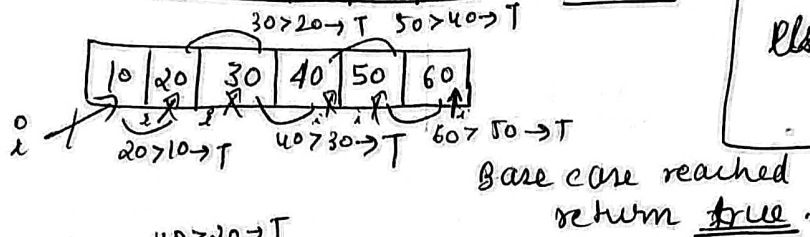 30>20→T 50>40→T
10 20 30 40 50 60
0
i i i i i i
20>10→T 40>30→T 60>50→T
Base case reached
return true.
40>30→T